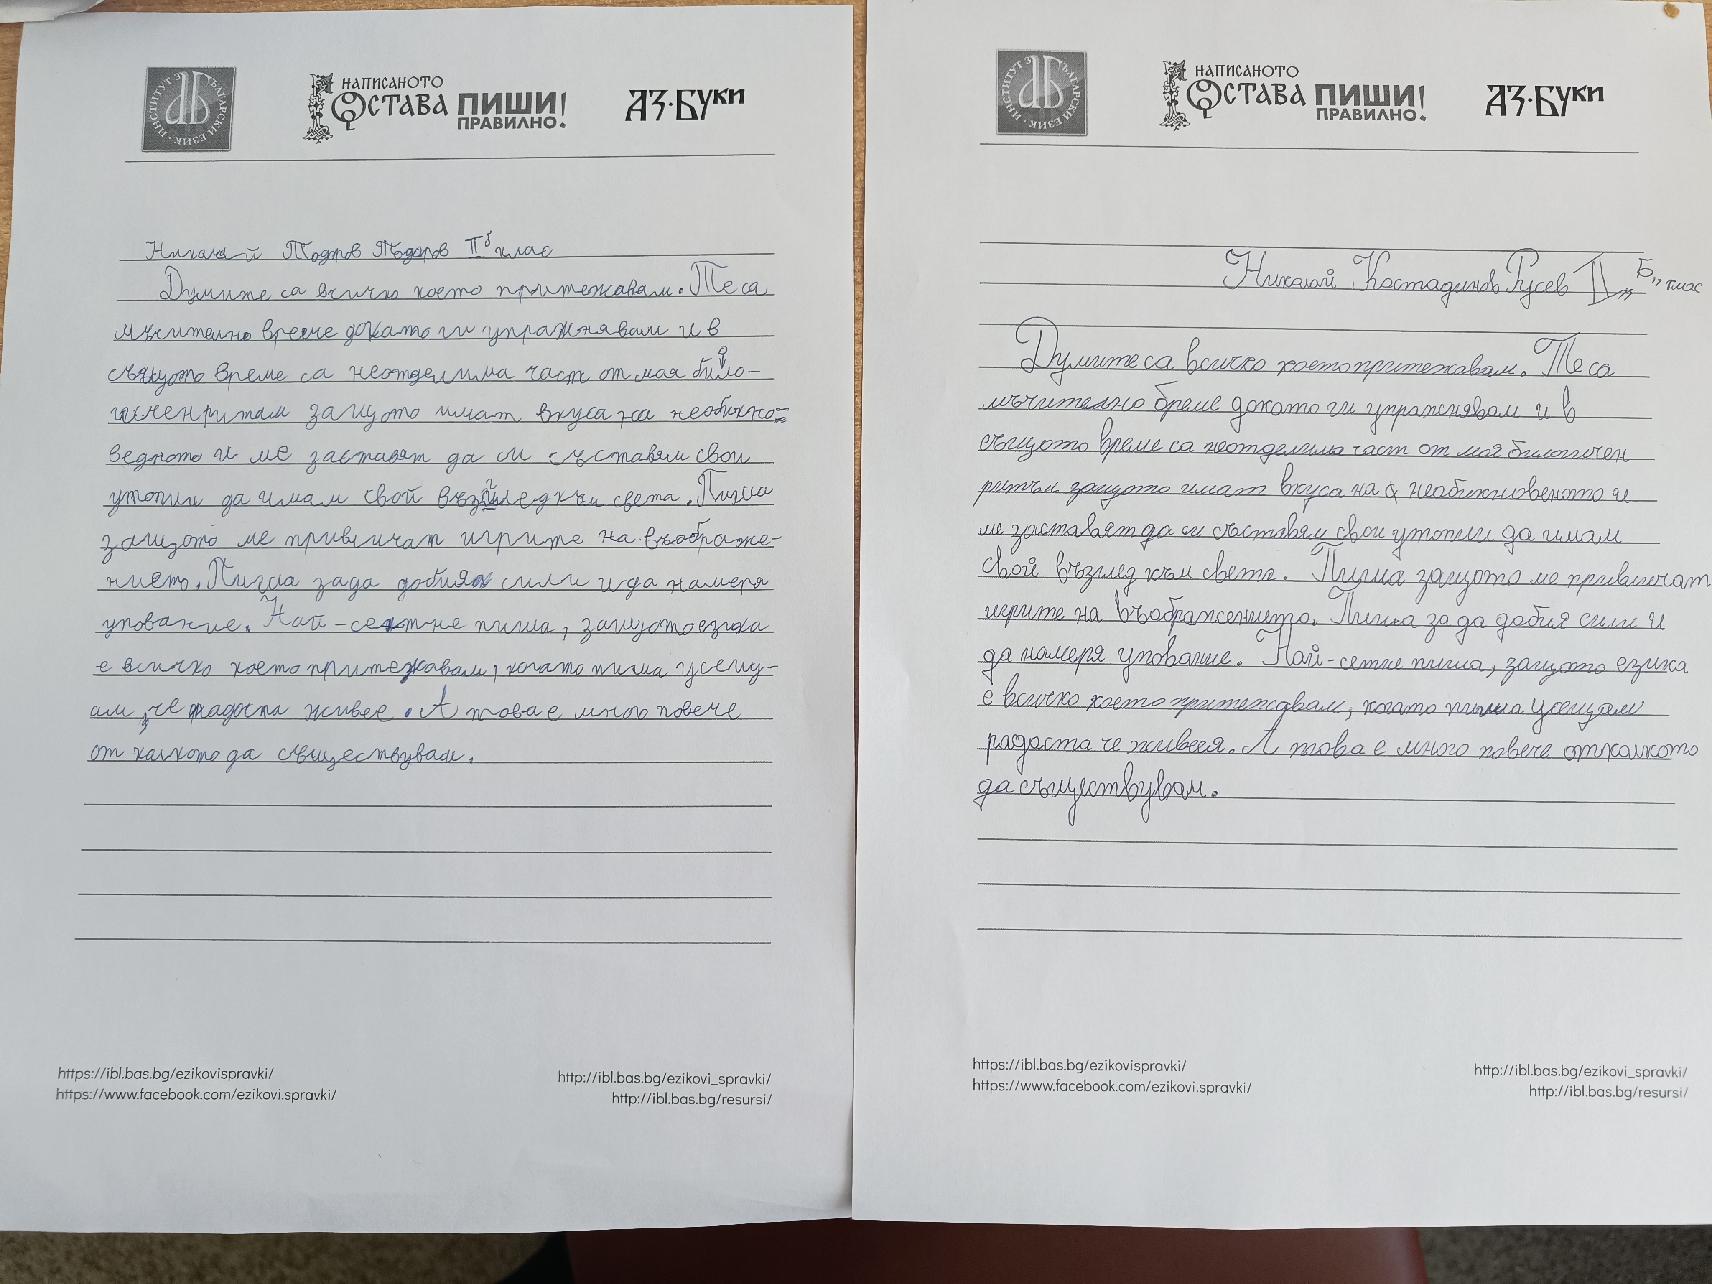 ИНСТИТУТ ЗА БЪЛГАРСКИ ЕЗИК
НАПИСАНОТО
ОСТАВА ПИШИ
ПРАВИЛНО!
АЗ·БУКИ
Николай Тодоров II б клас
Думите са всичко което притежавам. Те са
мъчително време докато ги упражнявам и в
същото време са неотделима част от мая било-
гиченритам защото имат вкуса на необикно-
ведното и ме заставят да си съставям свои
утопии да имам свой възгледкъм света. Пиша
защото ме привличат игрите на въображе-
нието. Пиша зада добия сили и да намеря
упование. Най-сетне пиша, защото езика
е всичко което притежавам, когато пиша усещ-
ам, че радоста живее. А това е много повече
от колкото да съществувам.
https://ibl.bas.bg/ezikovispravki/
https://www.facebook.com/ezikovi.spravki/
http://ibl.bas.bg/ezikovi_spravki/
http://ibl.bas.bg/resursi/
ИНСТИТУТ ЗА БЪЛГАРСКИ ЕЗИК
НАПИСАНОТО
ОСТАВА ПИШИ
ПРАВИЛНО!
АЗ·БУКИ
Николай Костадинов Русев II „Б" клас
Думите са всичко което притежавам. Те са
мъчително бреме докато ги упражнявам и в
същото време са неотделима част от моя билогичен
ритъм защото имат вкуса на необикновеното и
ме заставят да си съставям свои утопии да имам
свой възглед към света. Пиша защото ме привличат
игрите на въображението. Пиша за да добия сили и
да намеря упование. Най-сетне пиша, защото езика
е всичко което притежавам, когато пиша усещам
радоста че живея. А това е много повече отколкото
да съществувам.
https://ibl.bas.bg/ezikovispravki/
https://www.facebook.com/ezikovi.spravki/
http://ibl.bas.bg/ezikovi_spravki/
http://ibl.bas.bg/resursi/